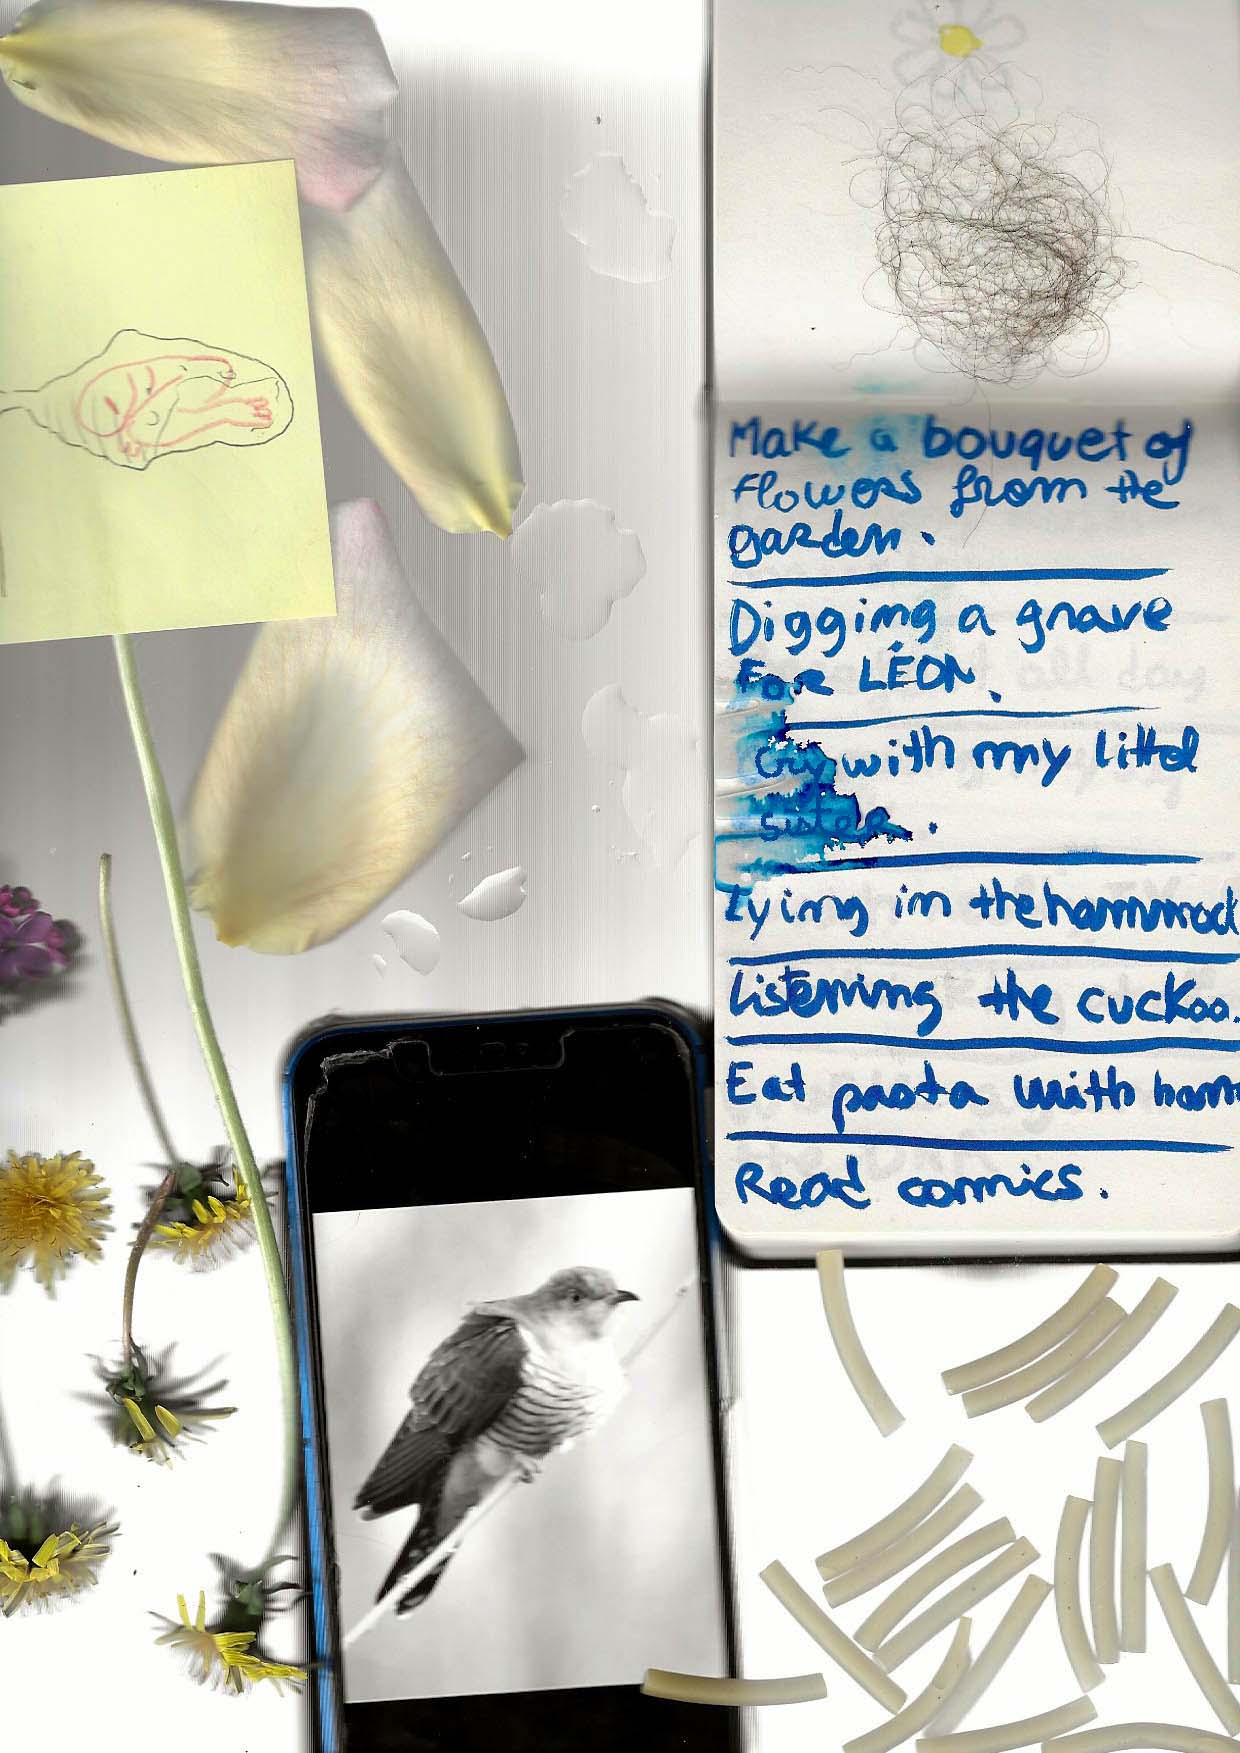 Make a bouquet of
Flowers from the
garden.
Digging a grave
For LÉON.
Cry with my littel
sister.
Lying in the hammock
Listening the cuckoo.
Eat pasta with ham
Read comics.
all day